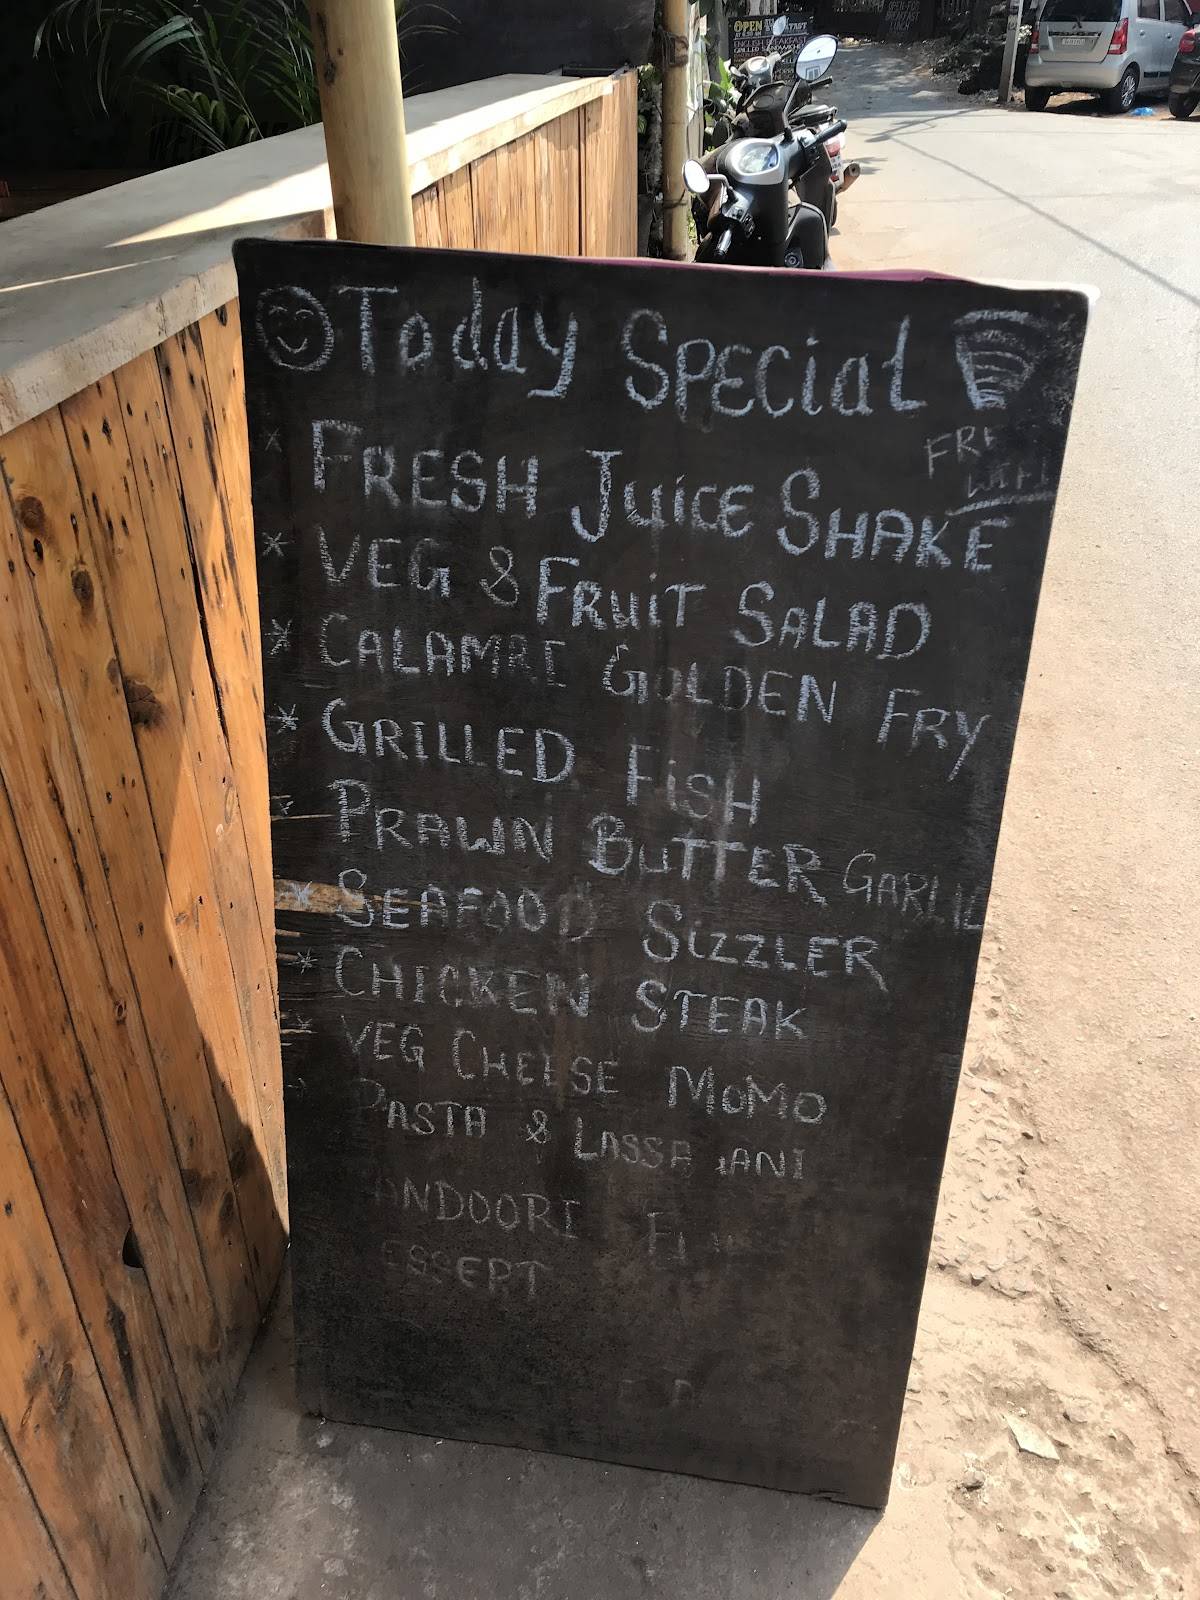 Today Special
FRESH JuiCE SHAKE
VEG & FRuiT SALAD
CALAMRI GOLDEN FRY
GRILLED FiSH
PRAWN BuTTER GARLIC
SEAFOOD SiZZLER
CHICKEN STEAK
VEG CHEESE MOMO
PASTA &
OPEN
ENGLISH BREAKFAST